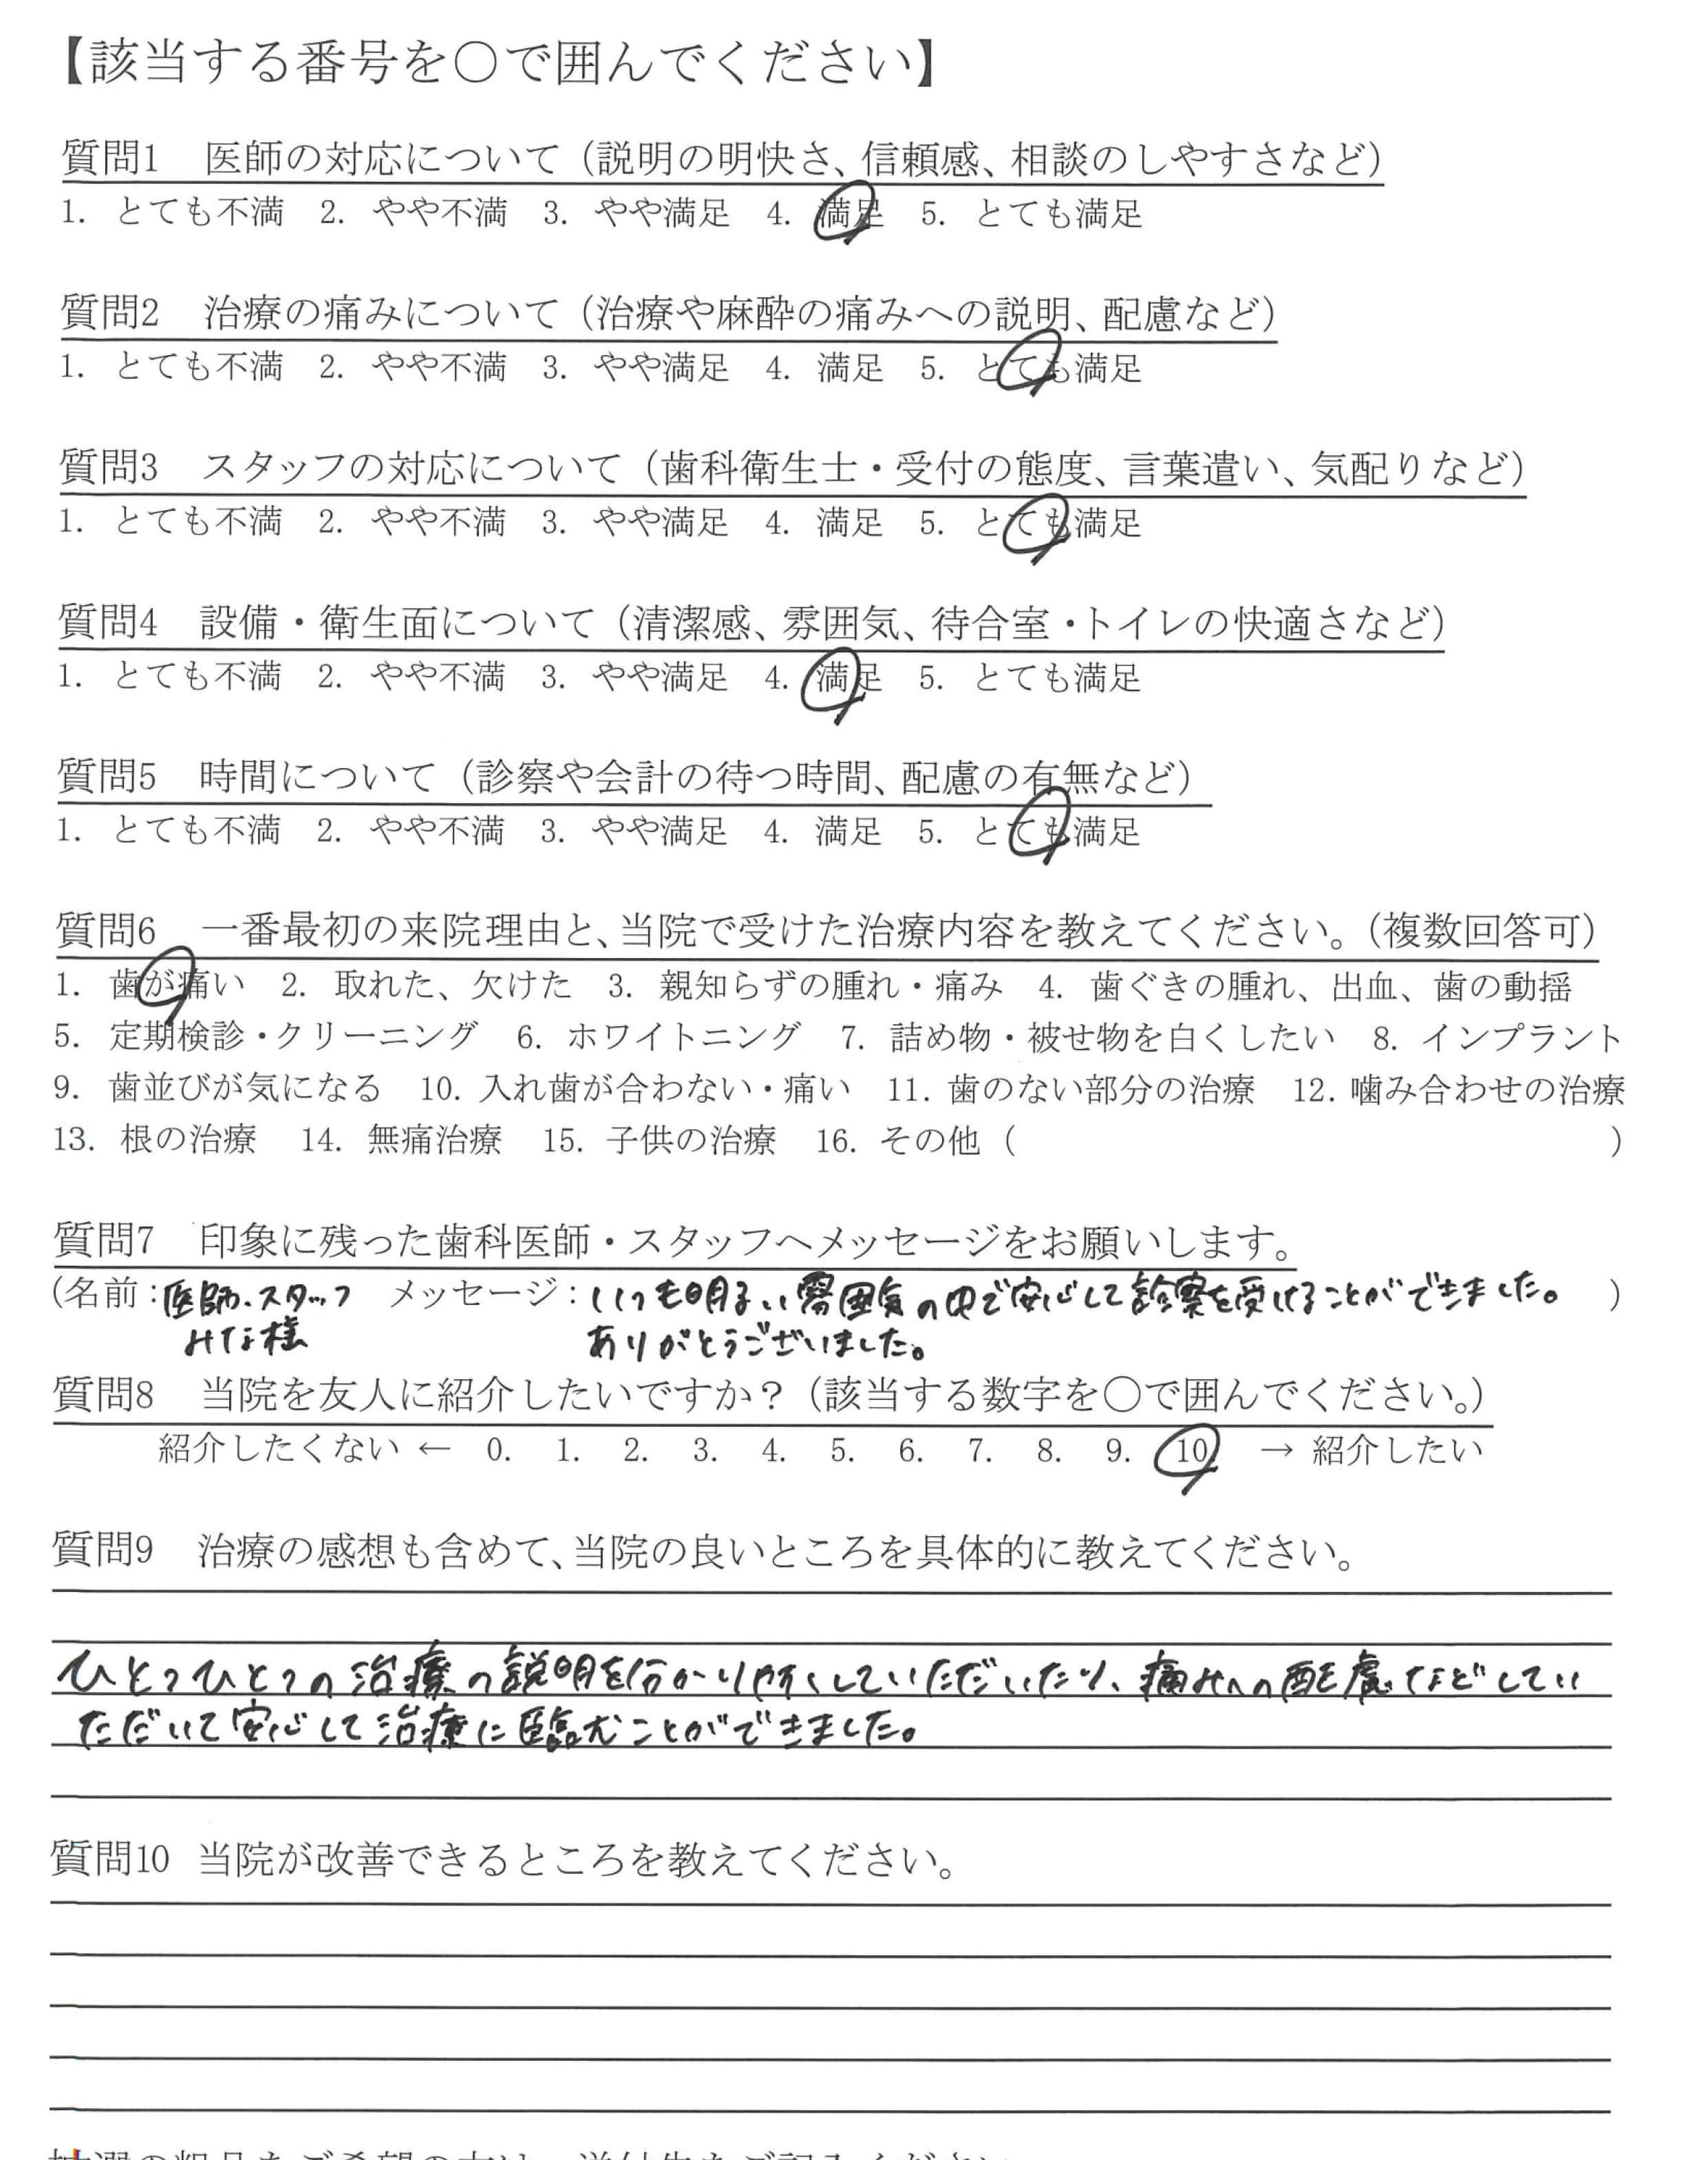 【該当する番号を〇で囲んでください】
質問1　医師の対応について（説明の明快さ、信頼感、相談のしやすさなど）
1. とても不満　2. やや不満　3. やや満足　4. 満足　5. とても満足
質問2　治療の痛みについて（治療や麻酔の痛みへの説明、配慮など）
1. とても不満　2. やや不満　3. やや満足　4. 満足　5. とても満足
質問3　スタッフの対応について（歯科衛生士・受付の態度、言葉遣い、気配りなど）
1. とても不満　2. やや不満　3. やや満足　4. 満足　5. とても満足
質問4　設備・衛生面について（清潔感、雰囲気、待合室・トイレの快適さなど）
1. とても不満　2. やや不満　3. やや満足　4. 満足　5. とても満足
質問5　時間について（診察や会計の待つ時間、配慮の有無など）
1. とても不満　2. やや不満　3. やや満足　4. 満足　5. とても満足
質問6　一番最初の来院理由と、当院で受けた治療内容を教えてください。（複数回答可）
1. 歯が痛い　2. 取れた、欠けた　3. 親知らずの腫れ・痛み　4. 歯ぐきの腫れ、出血、歯の動揺
5. 定期検診・クリーニング　6. ホワイトニング　7. 詰め物・被せ物を白くしたい　8. インプラント
9. 歯並びが気になる　10. 入れ歯が合わない・痛い　11. 歯のない部分の治療　12. 噛み合わせの治療
13. 根の治療　14. 無痛治療　15. 子供の治療　16. その他（　　　）
質問7　印象に残った歯科医師・スタッフへメッセージをお願いします。
（名前：医師・スタッフ　メッセージ：いつも明るい雰囲気の中で安心して診察を受けることができました。）
みな様　ありがとうございました。
質問8　当院を友人に紹介したいですか？（該当する数字を〇で囲んでください。）
紹介したくない ← 0. 1. 2. 3. 4. 5. 6. 7. 8. 9. 10. → 紹介したい
質問9　治療の感想も含めて、当院の良いところを具体的に教えてください。
ひとつひとつの治療の説明を分かりやすくしていただいたり、痛みへの配慮などしてい
ただいて安心して治療に臨むことができました。
質問10　当院が改善できるところを教えてください。